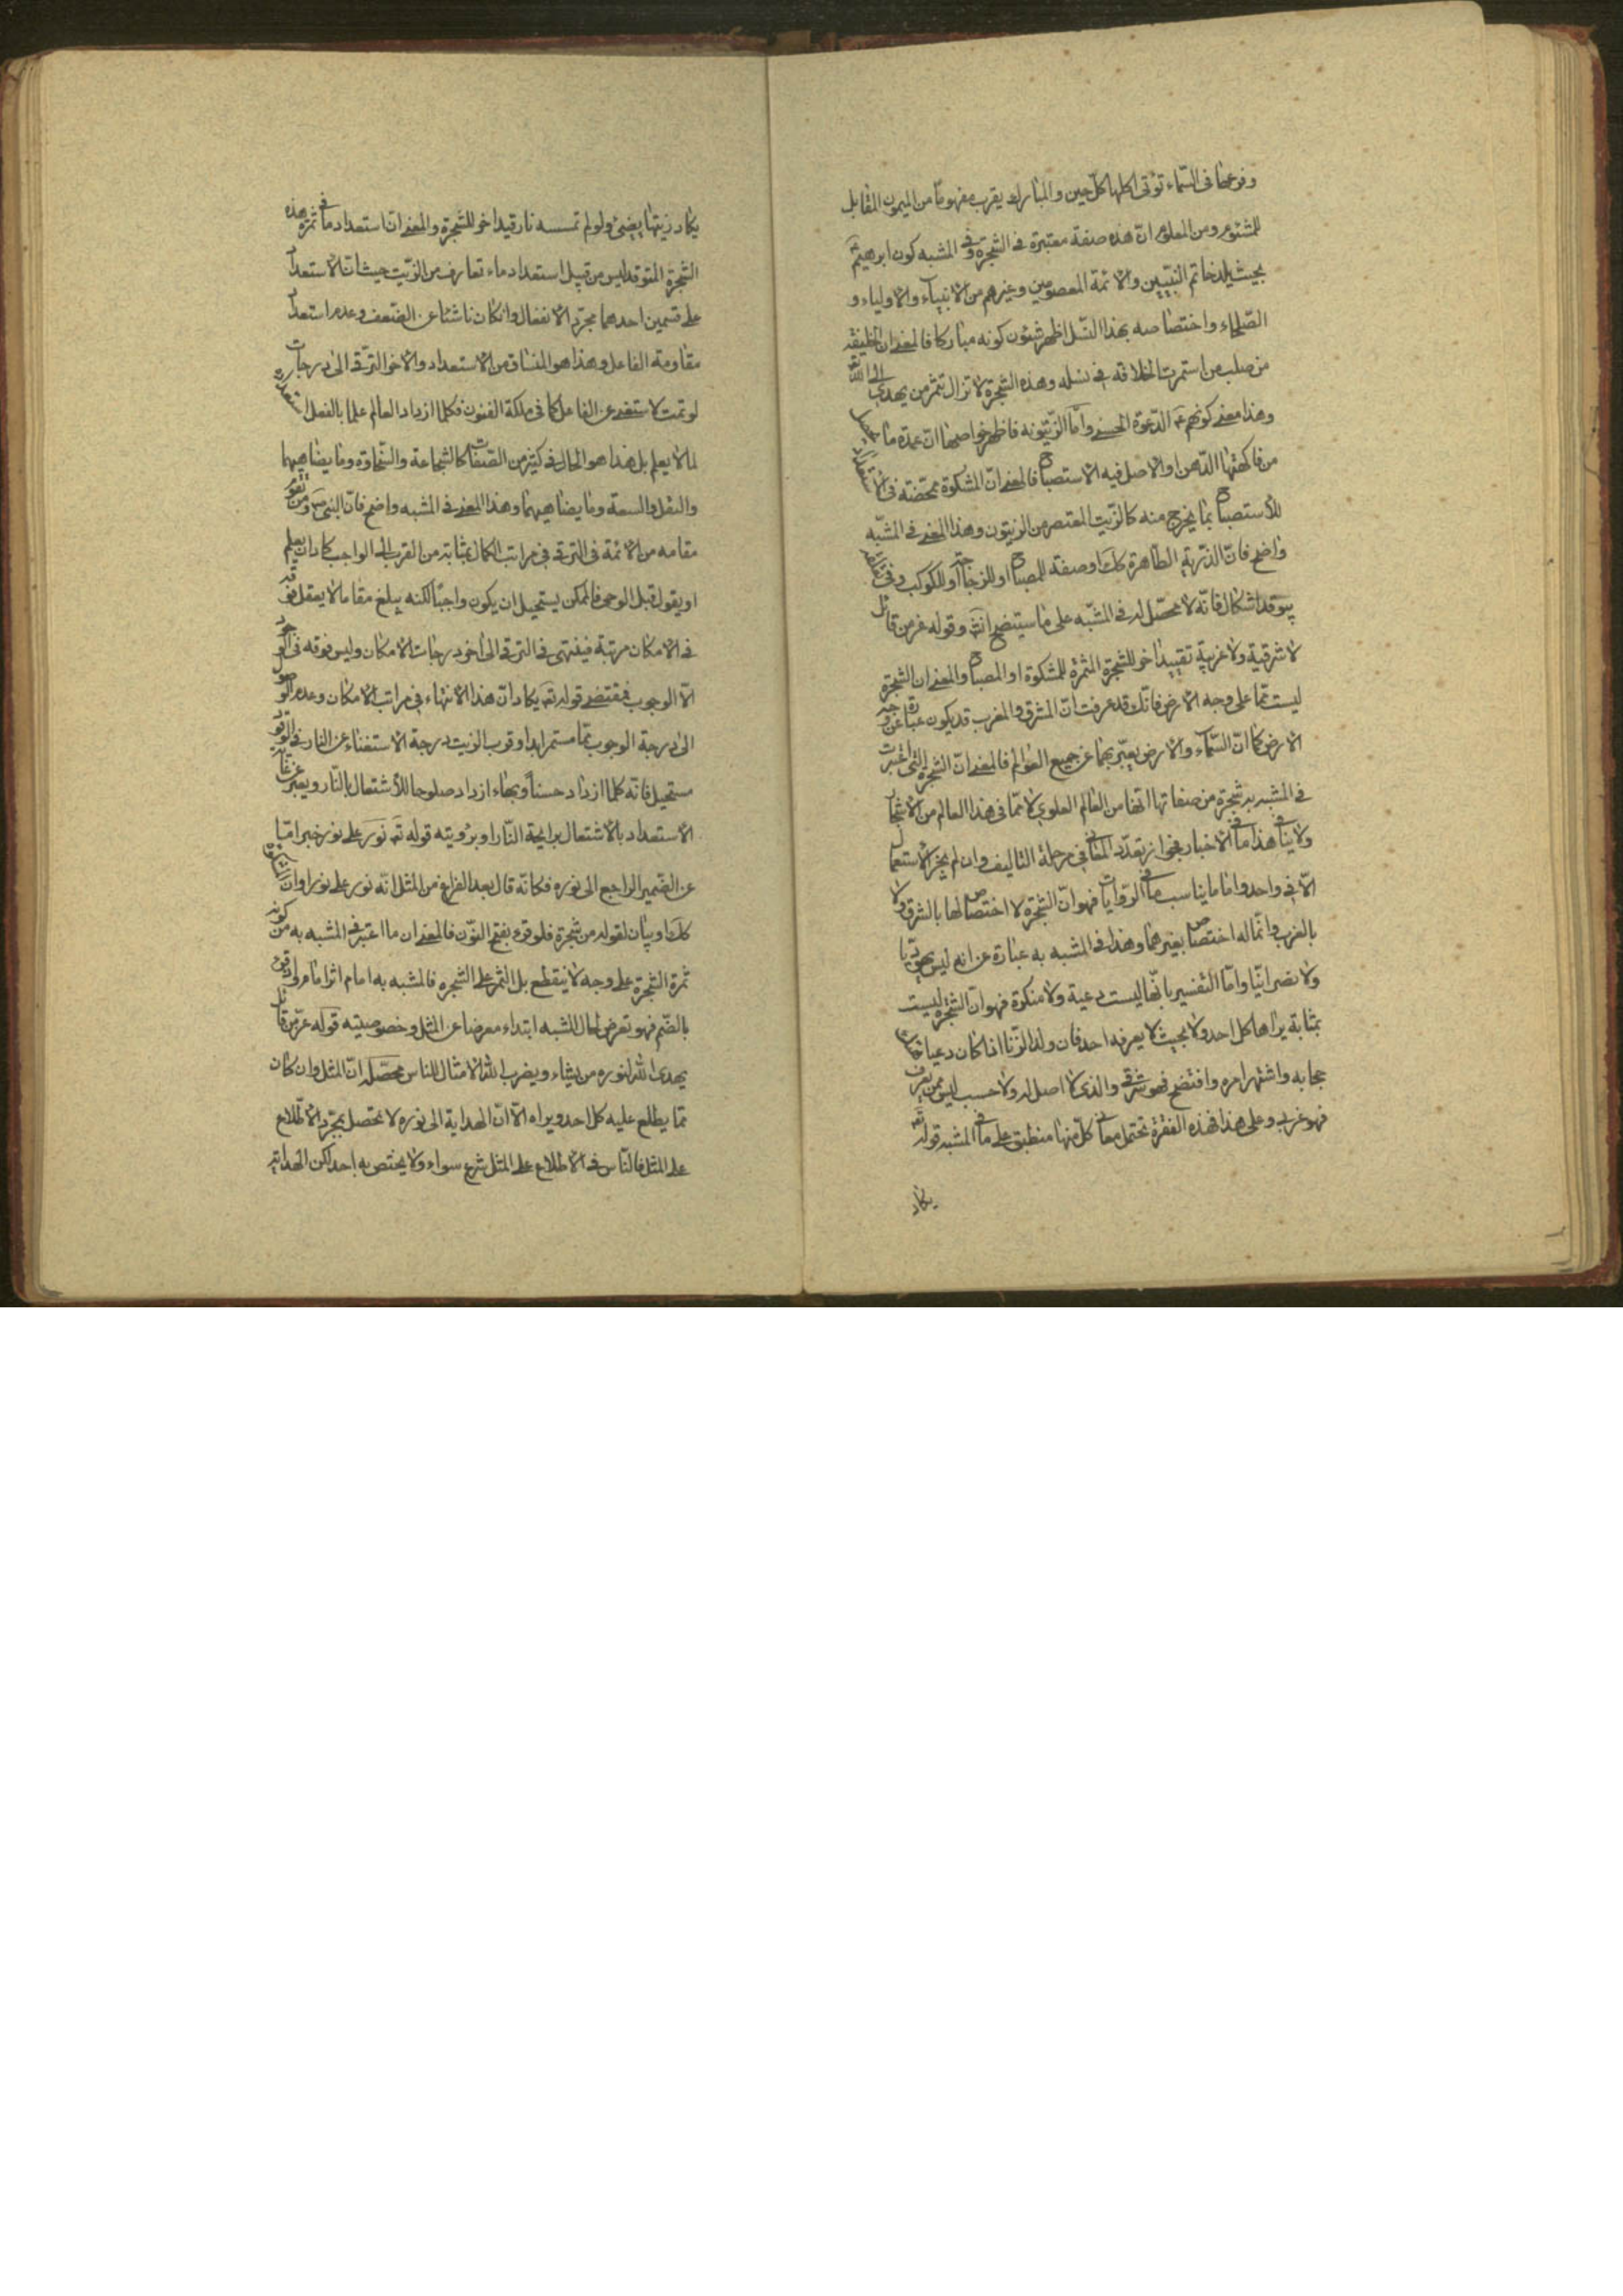 وفرعها فى السّماء تؤتى اكلها كلّ حين والمبارك يقرب مفهوما من الميمون المقابل
للمشئوم ومن المعلوم انّ هذه صفة معتبرة فى الشّجرة وفى المشبه كون ابرهيم
بحيث يلد خاتم النّبيّين والائمّة المعصومين وغيرهم من الانبياء والاولياء و
الصّلحاء واختصاصه بهذا النّسل اظهر شئون كونه مباركا فالمعنى ان الخليفة
من صلب من استمرت الخلافة فى نسله وهذه الشّجرة لا تزال تثمر من يهدى الى الله تع
وهذا معنى كونهم الدّعوة الحسنى وامّا الزّيتونه فاظهر خواصها انّ عمدة ما يحصل
من فاكهتها الدّهن او الاصل فيه الاستصباح فالمعنى انّ المشكوة ممحّضة فى الاستعداد
للاستصباح بما يخرج منه كالزّيت المعتصر من الزيتون وهذا المعنى فى المشبّه
واضح فانّ الذّريّة الطّاهرة كك او صفة للمصباح او للزجاجة او للكوكب وفى
يتوقد اشكال فانّه لا محصّل له فى المشبّه على ما سيتضح انش وقوله عز من قائل
لا شرقية ولا غربيّة تقييد اخر للشجرة المثمرة للمشكوة او المصباح والمعنى ان الشجرة
ليست ممّا على وجه الارض فانّك قد عرفت انّ المشرق والمغرب قد يكون عبارة عن وجه
الارض كما انّ السّماء والارض يعبّر بهما عن جميع العوالم فالمعنى انّ الشجرة الّتى اعتبرت
فى المشبه به شجرة من صفاتها انّها من العالم العلوى لا ممّا فى هذا العالم من الاشجار
ولا ينافى هذا ما فى الاخبار لجواز تعدّد المعانى فى مرحلة التاليف وان لم يجز الاستعمال
الّا فى واحد وامّا ما يناسب ما فى الرّوايات فهو انّ الشّجرة لا اختصاص لها بالشرق ولا
بالغرب وانّما له اختصاص بغيرهما وهذا فى المشبه به عبارة عن انه ليس يهوديّا
ولا نصرانيّا وامّا التفسير بانّها ليست دعية ولا منكرة فهو انّ الشّجرة ليست
بمثابة يراها كل احد ولا بحيث لا يعرفه احد فان ولد الزّنا اذا كان دعيا
حجابه واشتهر امره وافتضح فهو شرقى والذى لا اصل له ولا حسب ليس ممن يعرف
فهو غربى وعلى هذا فهذه الفقرة تحتمل معانى كلّ منها منطبق على ما فى المشبه قوله تع
يكاد
يكاد زيتها يضيئ ولو لم تمسسه نار قيد اخر للشّجرة والمعنى انّ استعداد ما فى ثمرة هذه
الشّجرة المتوقد ليس من قبيل استعداد ما تعارف من الزّيت حيث انّ الاستعداد
على قسمين احدهما مجرّد الانفعال وان كان ناشئا عن الضّعف وعدم استعداد
مقاومة الفاعل وهذا هو المنساق من الاستعداد والاخر الترّقى الى درجات
لو تمت لاستغنى عن الفاعل كما فى ملكة الفنون فكلما ازداد العالم علما بالفعل استعد
لما لا يعلم بل هذا هو الحال فى كثير من الصّفات كالشّجاعة والسّخاوة وما يضاهيهما
والثقل والسعة وما يضاهيهما وهذا المعنى فى المشبه واضح فانّ النبىّ ص ومن يقوم
مقامه من الائمة فى الترقى فى مراتب الكمال بمثابة من القرب الى الواجب كاد ان يعلم
او يقول قبل الوحى فالممكن يستحيل ان يكون واجبًا لكنه يبلغ مقاما لا يعقل فوقه
فى الامكان مرتبة فينتهى فى الترقى الى اخر درجات الامكان وليس فوقه فى الوجود
الّا الوجوب فمقتضى قوله تع يكاد انّ هذا الانتهاء فى مراتب الامكان وعدم الوصول
الى درجة الوجوب ممّا مستمر ابدا وقرب الزيت درجة الاستغناء عن النار فى التوقد
مستحيل فانّه كلما ازداد حسناً وبهاء ازداد صلوحا للاشتعال بالنّار ويعبر عن غاية
الاستعداد بالاشتعال برايحة النّار او برؤيته قوله تع نور على نور خبر امّا
عن الضّمير الراجع الى نوره فكانّه قال بعد الفراغ من المثل انّه نور على نور او انّ المشكوة
كك او بيان لقوله من شجرة فلو قرء بفتح النّون فالمعنى ان ما اعتبر فى المشبه به من كونه
ثمرة الشّجرة على وجه لا ينقطع بل الثّمر على الشّجره فالمشبه به امام اثر امام ولو قرء
بالضّم فهو تعرض لحال المشبه ابتداء معرضا عن المثل وخصوصيته قوله عزّ من قائل
يهدى الله لنوره من يشاء ويضرب الله الامثال للناس محصّله انّ المثل وان كان
ممّا يطلع عليه كل احد ويراه الّا انّ الهداية الى نوره لا تحصل بمجرّد الاطّلاع
على المثل فالنّاس فى الاطلاع على المثل شرع سواء ولا يختص به احد لكن الهداية